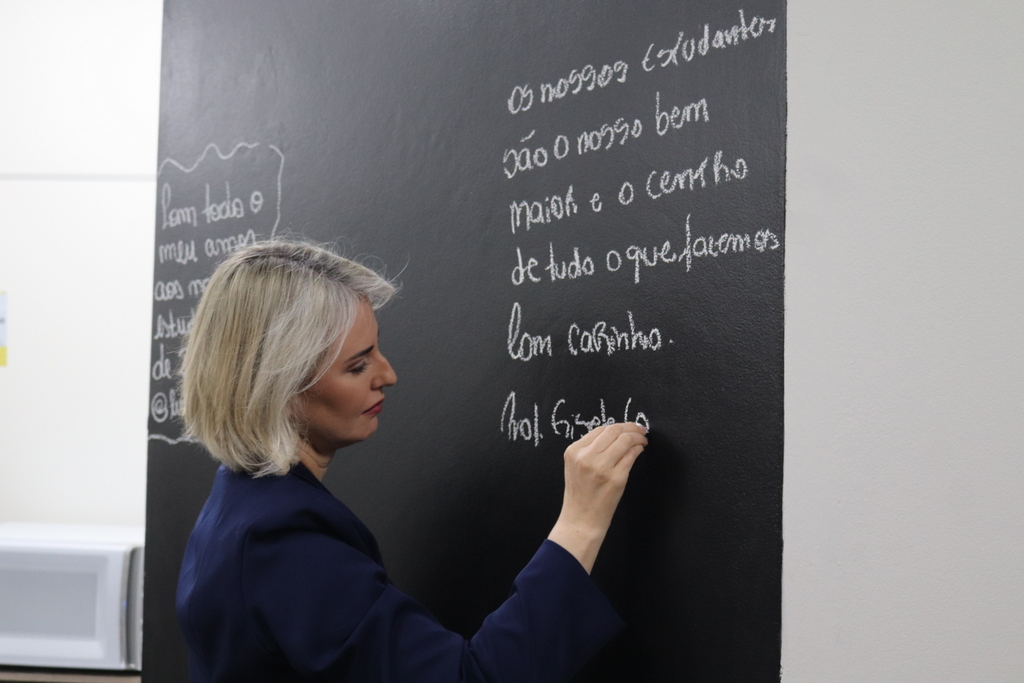 Com todo o
meu amor
aos
de
os nossos estudantes
são o nosso bem
maior e o centro
de tudo o que fazemos
Com carinho.
Prof. Gisele Co